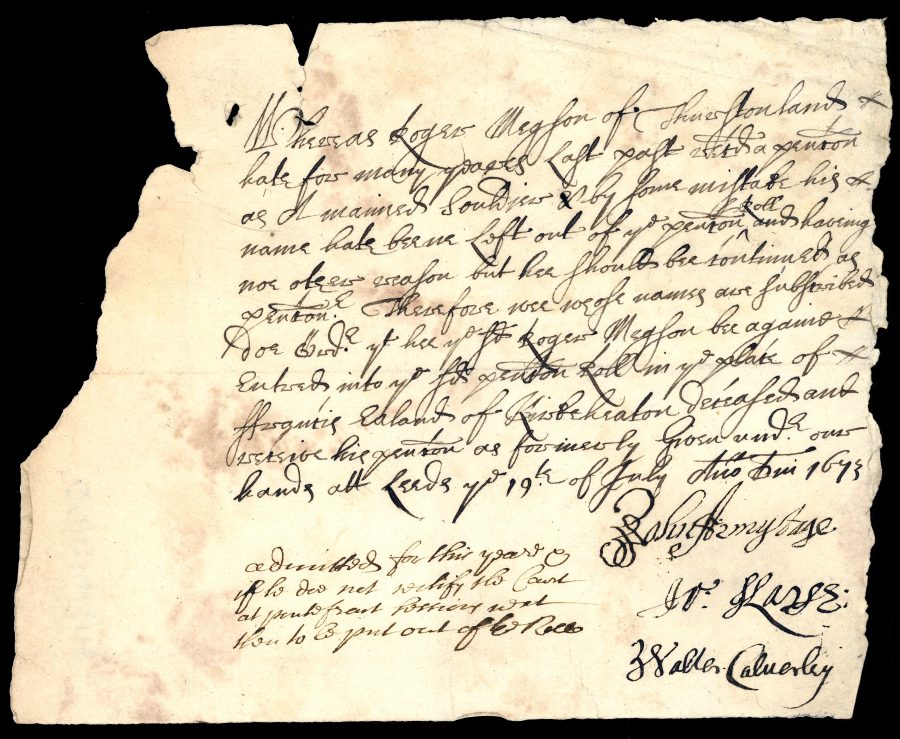 Whereas Roger Megson of Thurstonland
hath for many yeares Last past recd a pencon
as A maimed Souldier & by some mistake his
name hath beene Left out of ye pencon Roll and haveing
noe other reason but hee should bee continued as
penconr. Therefore wee whose names are subscribed
doe Ordr. yt hee ye sd Roger Megson bee againe
Entred into ye sd pencon Roll in ye place of
ffrancis Ealand of Kirkheaton deceased and
receive his pencon as formerly Given undr. our
hands att Leeds ye 19th of July Ano Dni 1673
John Armytage
Jo. Kaye:
Walter Calverley
admitted for this yeare &
if he doe not certify the Court
at pontefract sessions next
then to be put out of the Roll